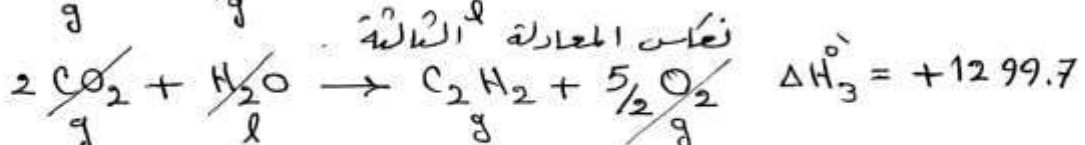 g g l
نعكس المعادلة الثالثة .
2 CO₂ + H₂O → C₂H₂ + 5/2 O₂ ΔH₃°` = +1299.7
g l g g